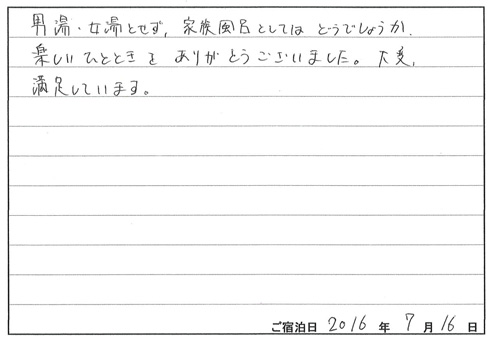 男湯・女湯とせず、家族風呂としては どうでしょうか.
楽しい ひとときを ありがとうございました。大変、
満足しています。
ご宿泊日 2016 年 7 月 16 日